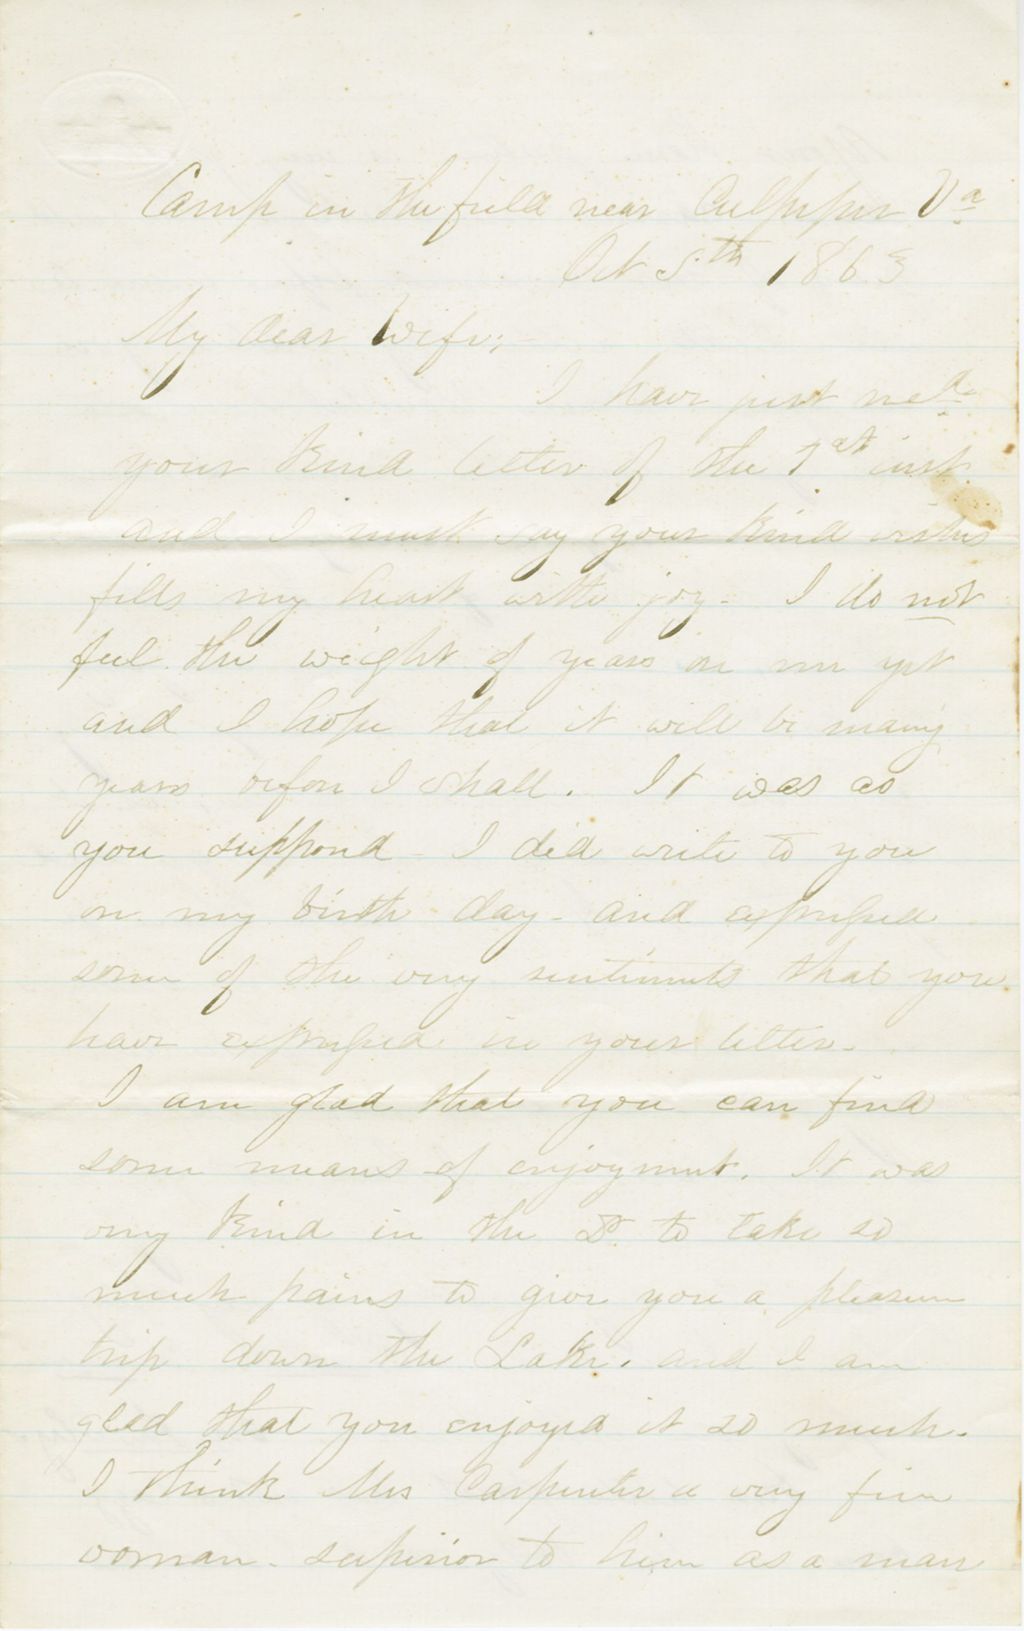 Camp in the field near Culpeper Va
Oct 5th 1863
My dear Wife,
I have just recd
your kind letter of the 1st inst
and I must say your kind wishes
fills my heart with joy - I do not
feel the weight of years on me yet
and I hope that it will be many
years before I shall. It was as
you supposed - I did write to you
on my birth day - and expressed
some of the very sentiments that you
have expressed in your letter.
I am glad that you can find
some means of enjoyment. It was
very kind in the Dr to take so
much pains to give you a pleasure
trip down the Lake. and I am
glad that you enjoyed it so much.
I think Mrs Carpenter a very fine
woman - superior to him as a man